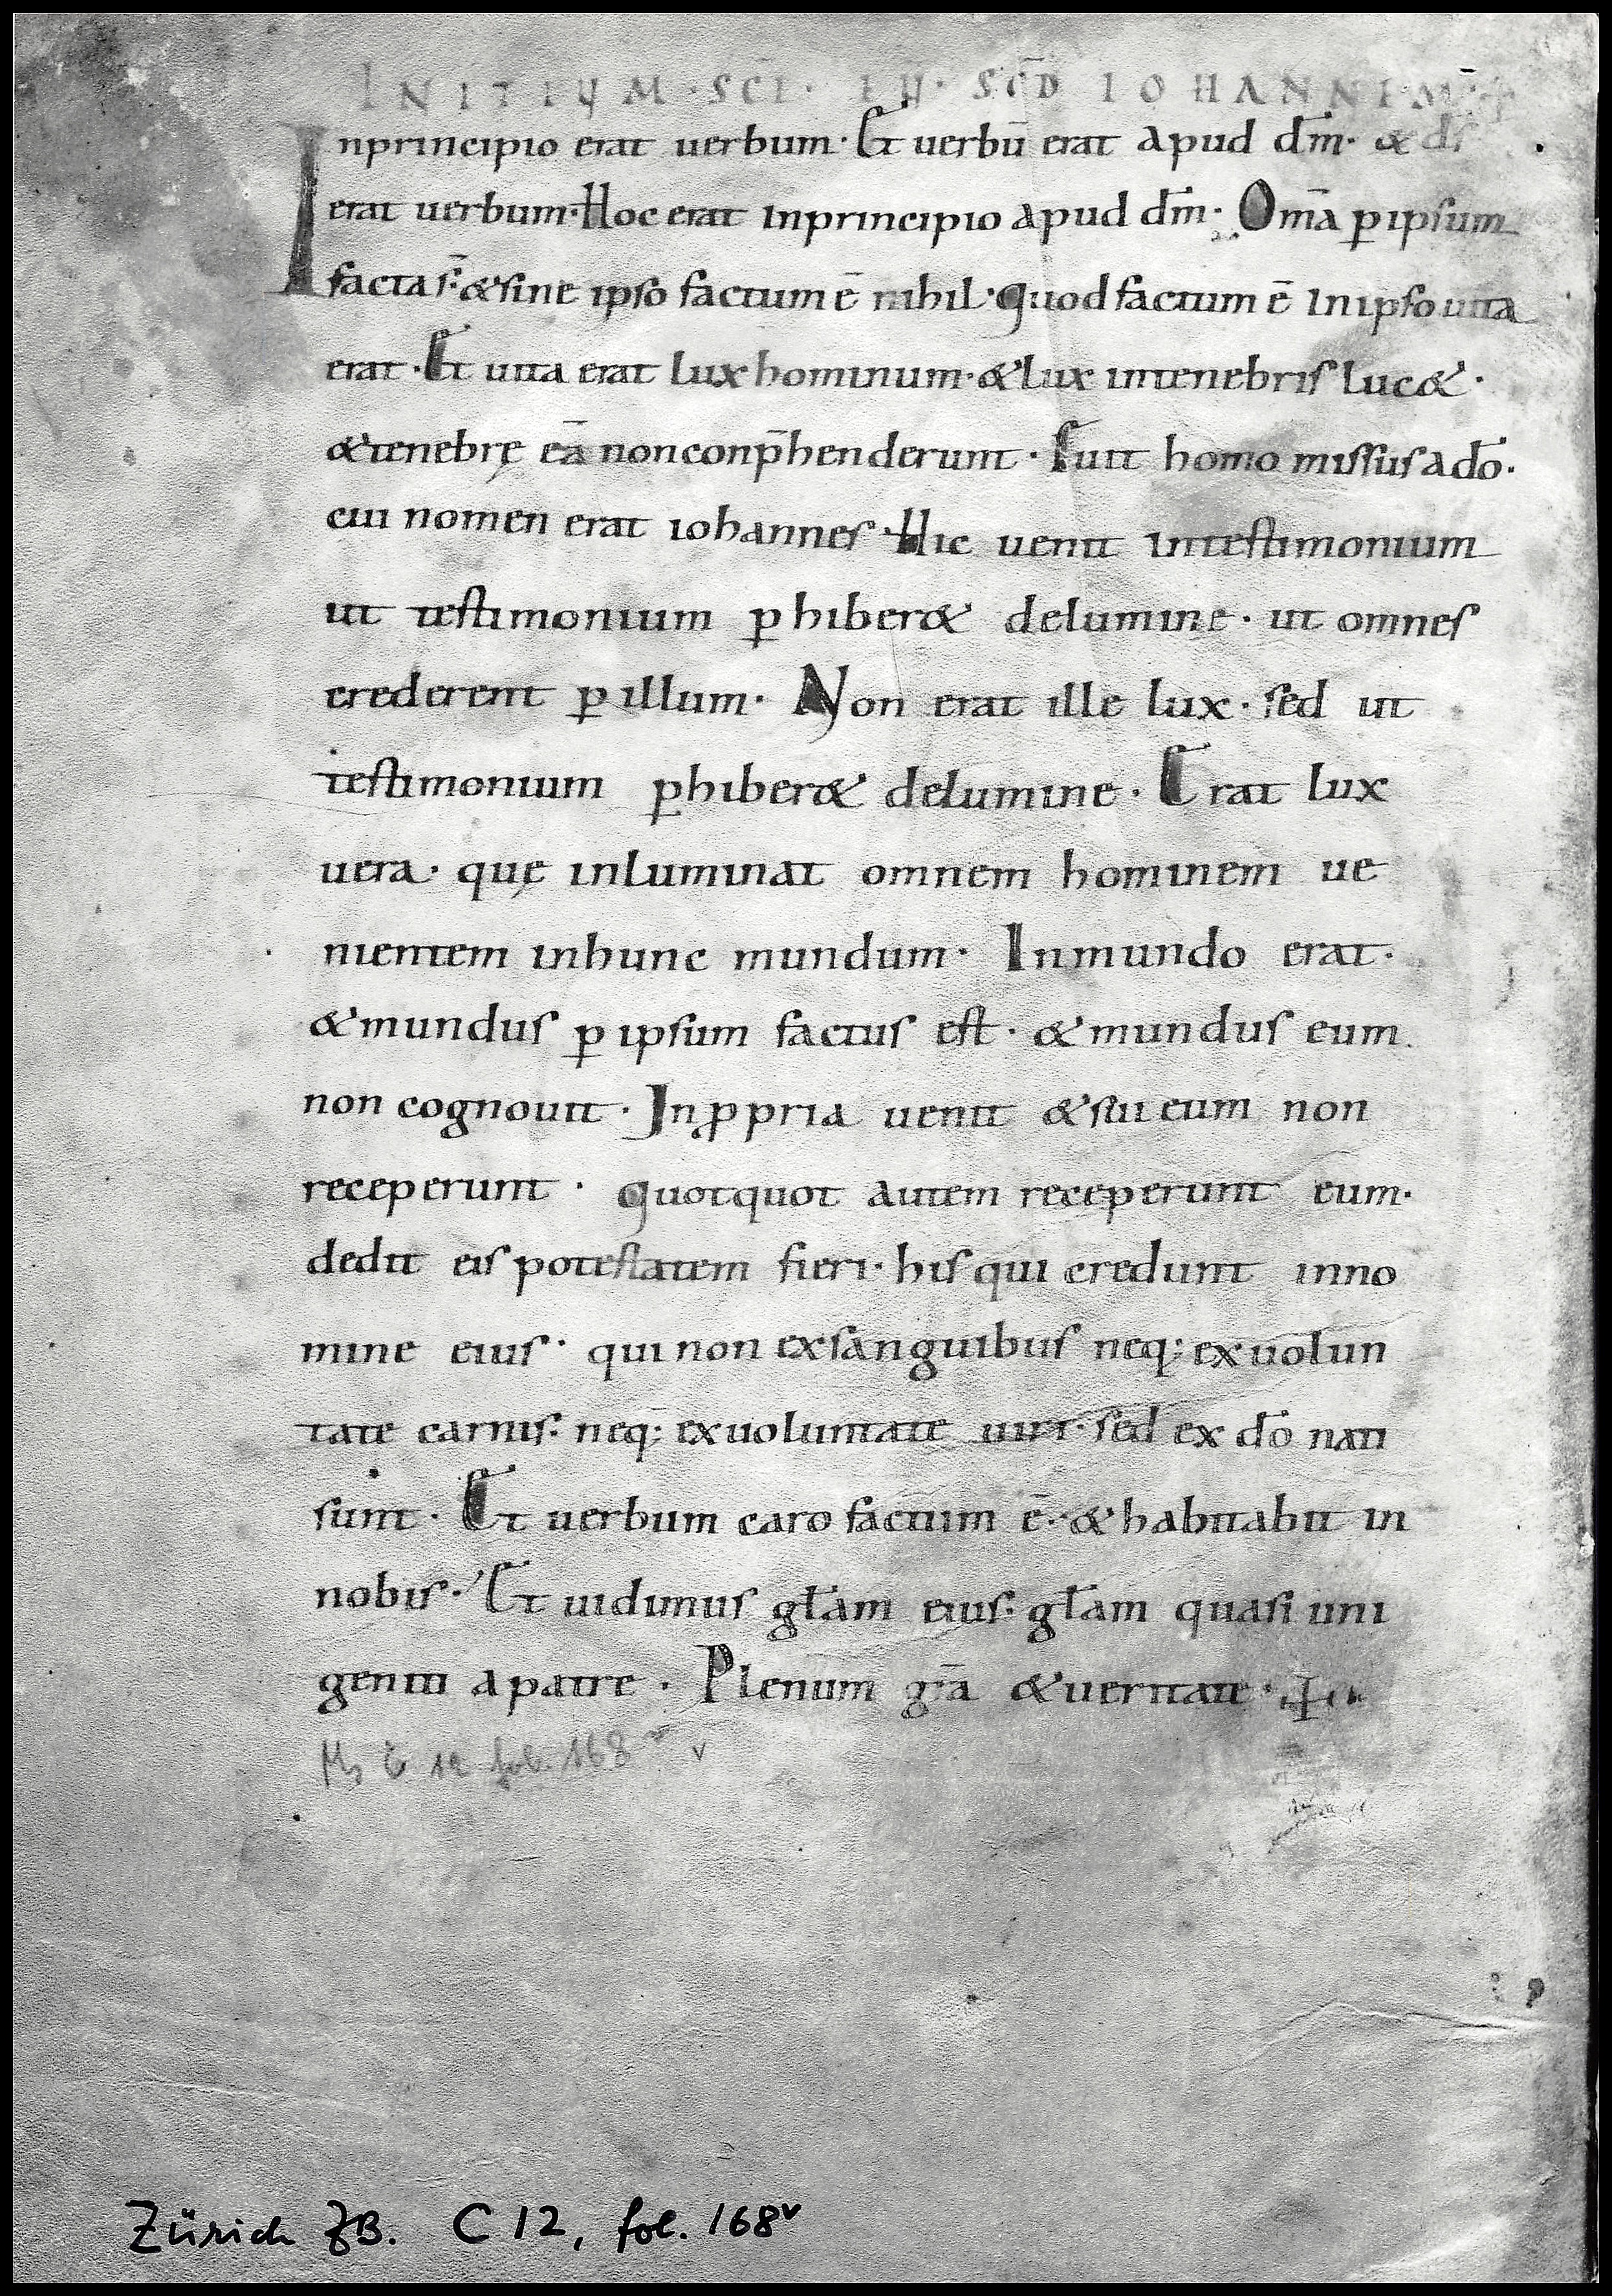 INITIUM · SCI · EU · SCD̄ IOHANNEM
Inprincipio erat uerbum · Et uerbū erat apud dm̄ · & ds̄
erat uerbum · Hoc erat inprincipio apud dm̄ · Om̄a ꝑ ipsum
facta s̄ · & sine ipso factum ē nihil · quod factum ē In ipso uita
erat · Et uita erat lux hominum · & lux intenebris luc& ·
& tenebrę eā non conp̄henderunt · Fuit homo missus a dō ·
cui nomen erat iohannes · Hic uenit intestimonium
ut testimonium ꝑhiber& delumine · ut omnes
crederent ꝑ illum · Non erat ille lux · sed ut
testimonium ꝑhiber& delumine · Erat lux
uera · quę inluminat omnem hominem ue
nientem inhunc mundum · Inmundo erat ·
& mundus ꝑ ipsum factus est · & mundus eum
non cognouit · In ꝓpria uenit & sui eum non
receperunt · quotquot autem receperunt eum ·
dedit eis potestatem fieri · his qui credunt inno
mine eius · qui non ex sanguibus neq; ex uolun
tate carnis · neq; ex uoluntate uiri · sed ex dō nati
sunt · Et uerbum caro factum ē · & habitabit in
nobis · Et uidimus gl̄am eius · gl̄am quasi uni
geniti a patre · Plenum gr̄a & ueritate ·
Ms C 12 fol. 168 v
Zürich ZB. C 12, fol. 168ᵛ